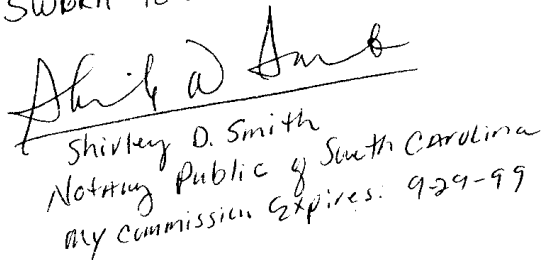 SWORN TO
Shirley D. Smith
Shirley D. Smith
Notary Public of South Carolina
My Commission Expires: 9-29-99